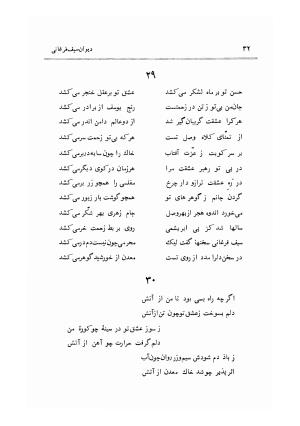 ۳۲ دیوان سیف فرغانی
۲۹
حسن تو بر ماه لشکر می‌کشد عشق تو بر عقل خنجر می‌کشد
جان من بی‌تو ز تن در زحمتست رنج یوسف از برادر می‌کشد
هرکرا عشقت گریبان‌گیر شد از دو عالم دامن اندر می‌کشد
از تمنّای کلاه وصل تست هر که بی‌تو زحمت سر می‌کشد
بر سر کویت ز عزّت آفتاب خاک را چون سایه در بر می‌کشد
در پی تو رهبر عشقت مرا هر زمان در کوی دیگر می‌کشد
در ره عشقت ترازودار چرخ مفلسی را همچو زر بر می‌کشد
گردن جانم ز گوهرهای تو همچو گوشت بار زیور می‌کشد
می‌خورد اندوه هجر از بهر وصل جام زهری بهر شکّر می‌کشد
سالها شد کز پی ابریشمی روی بربط زحمت خر می‌کشد
سیف فرغانی سخنها گفت لیک مجرمی چون نیست دم در می‌کشد
در سخن دارا مدد از روی تست معدن از خورشید گوهر می‌کشد
۳۰
اگر چه راه بسی بود تا من از آتش
دلم بسوخت ز عشق تو چون تن از آتش
ز سوز عشق تو در سینهٔ چو کورهٔ من
دلم گرفت حرارت چو آهن از آتش
ز باد دم شودش سیم و زر روان چون آب
اثر پذیر چو شد خاک معدن از آتش